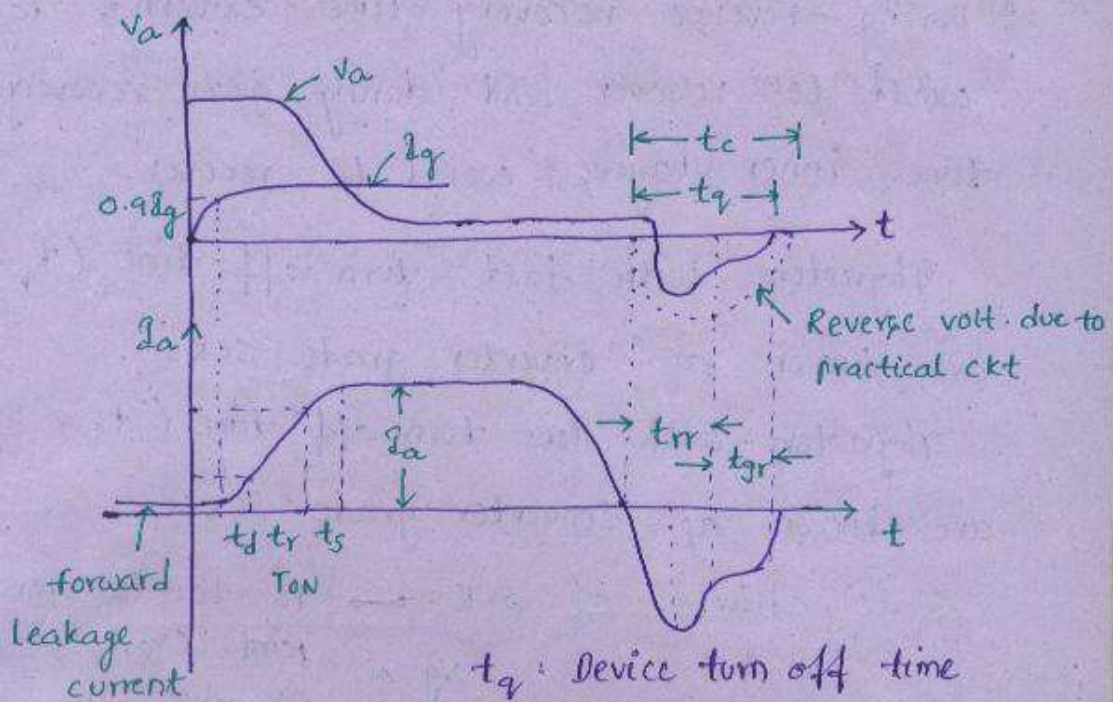 Va
Va
Ig
0.9Ig
tc
tq
t
Reverse volt. due to
practical ckt
Ia
Ia
trr
tgr
td tr ts
TON
t
forward
leakage
current
tq : Device turn off time